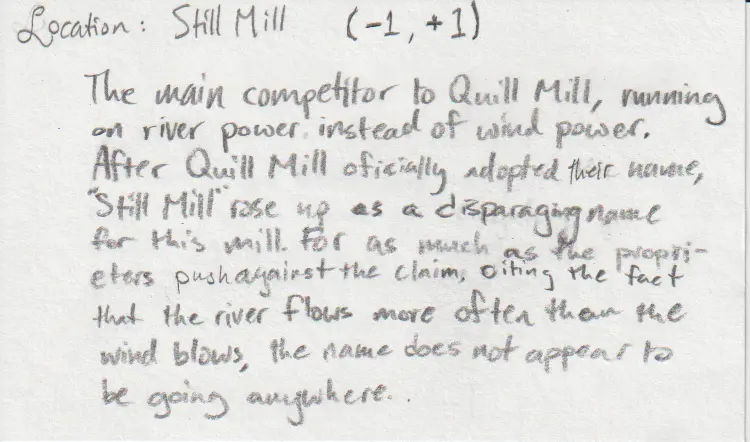 Location: Still Mill (-1, +1)
The main competitor to Quill Mill, running
on river power. instead of wind power.
After Quill Mill oficially adopted their name,
"Still Mill" rose up as a disparaging name
for this mill. For as much as the propri-
eters push against the claim, citing the fact
that the river flows more often than the
wind blows, the name does not appear to
be going anywhere..